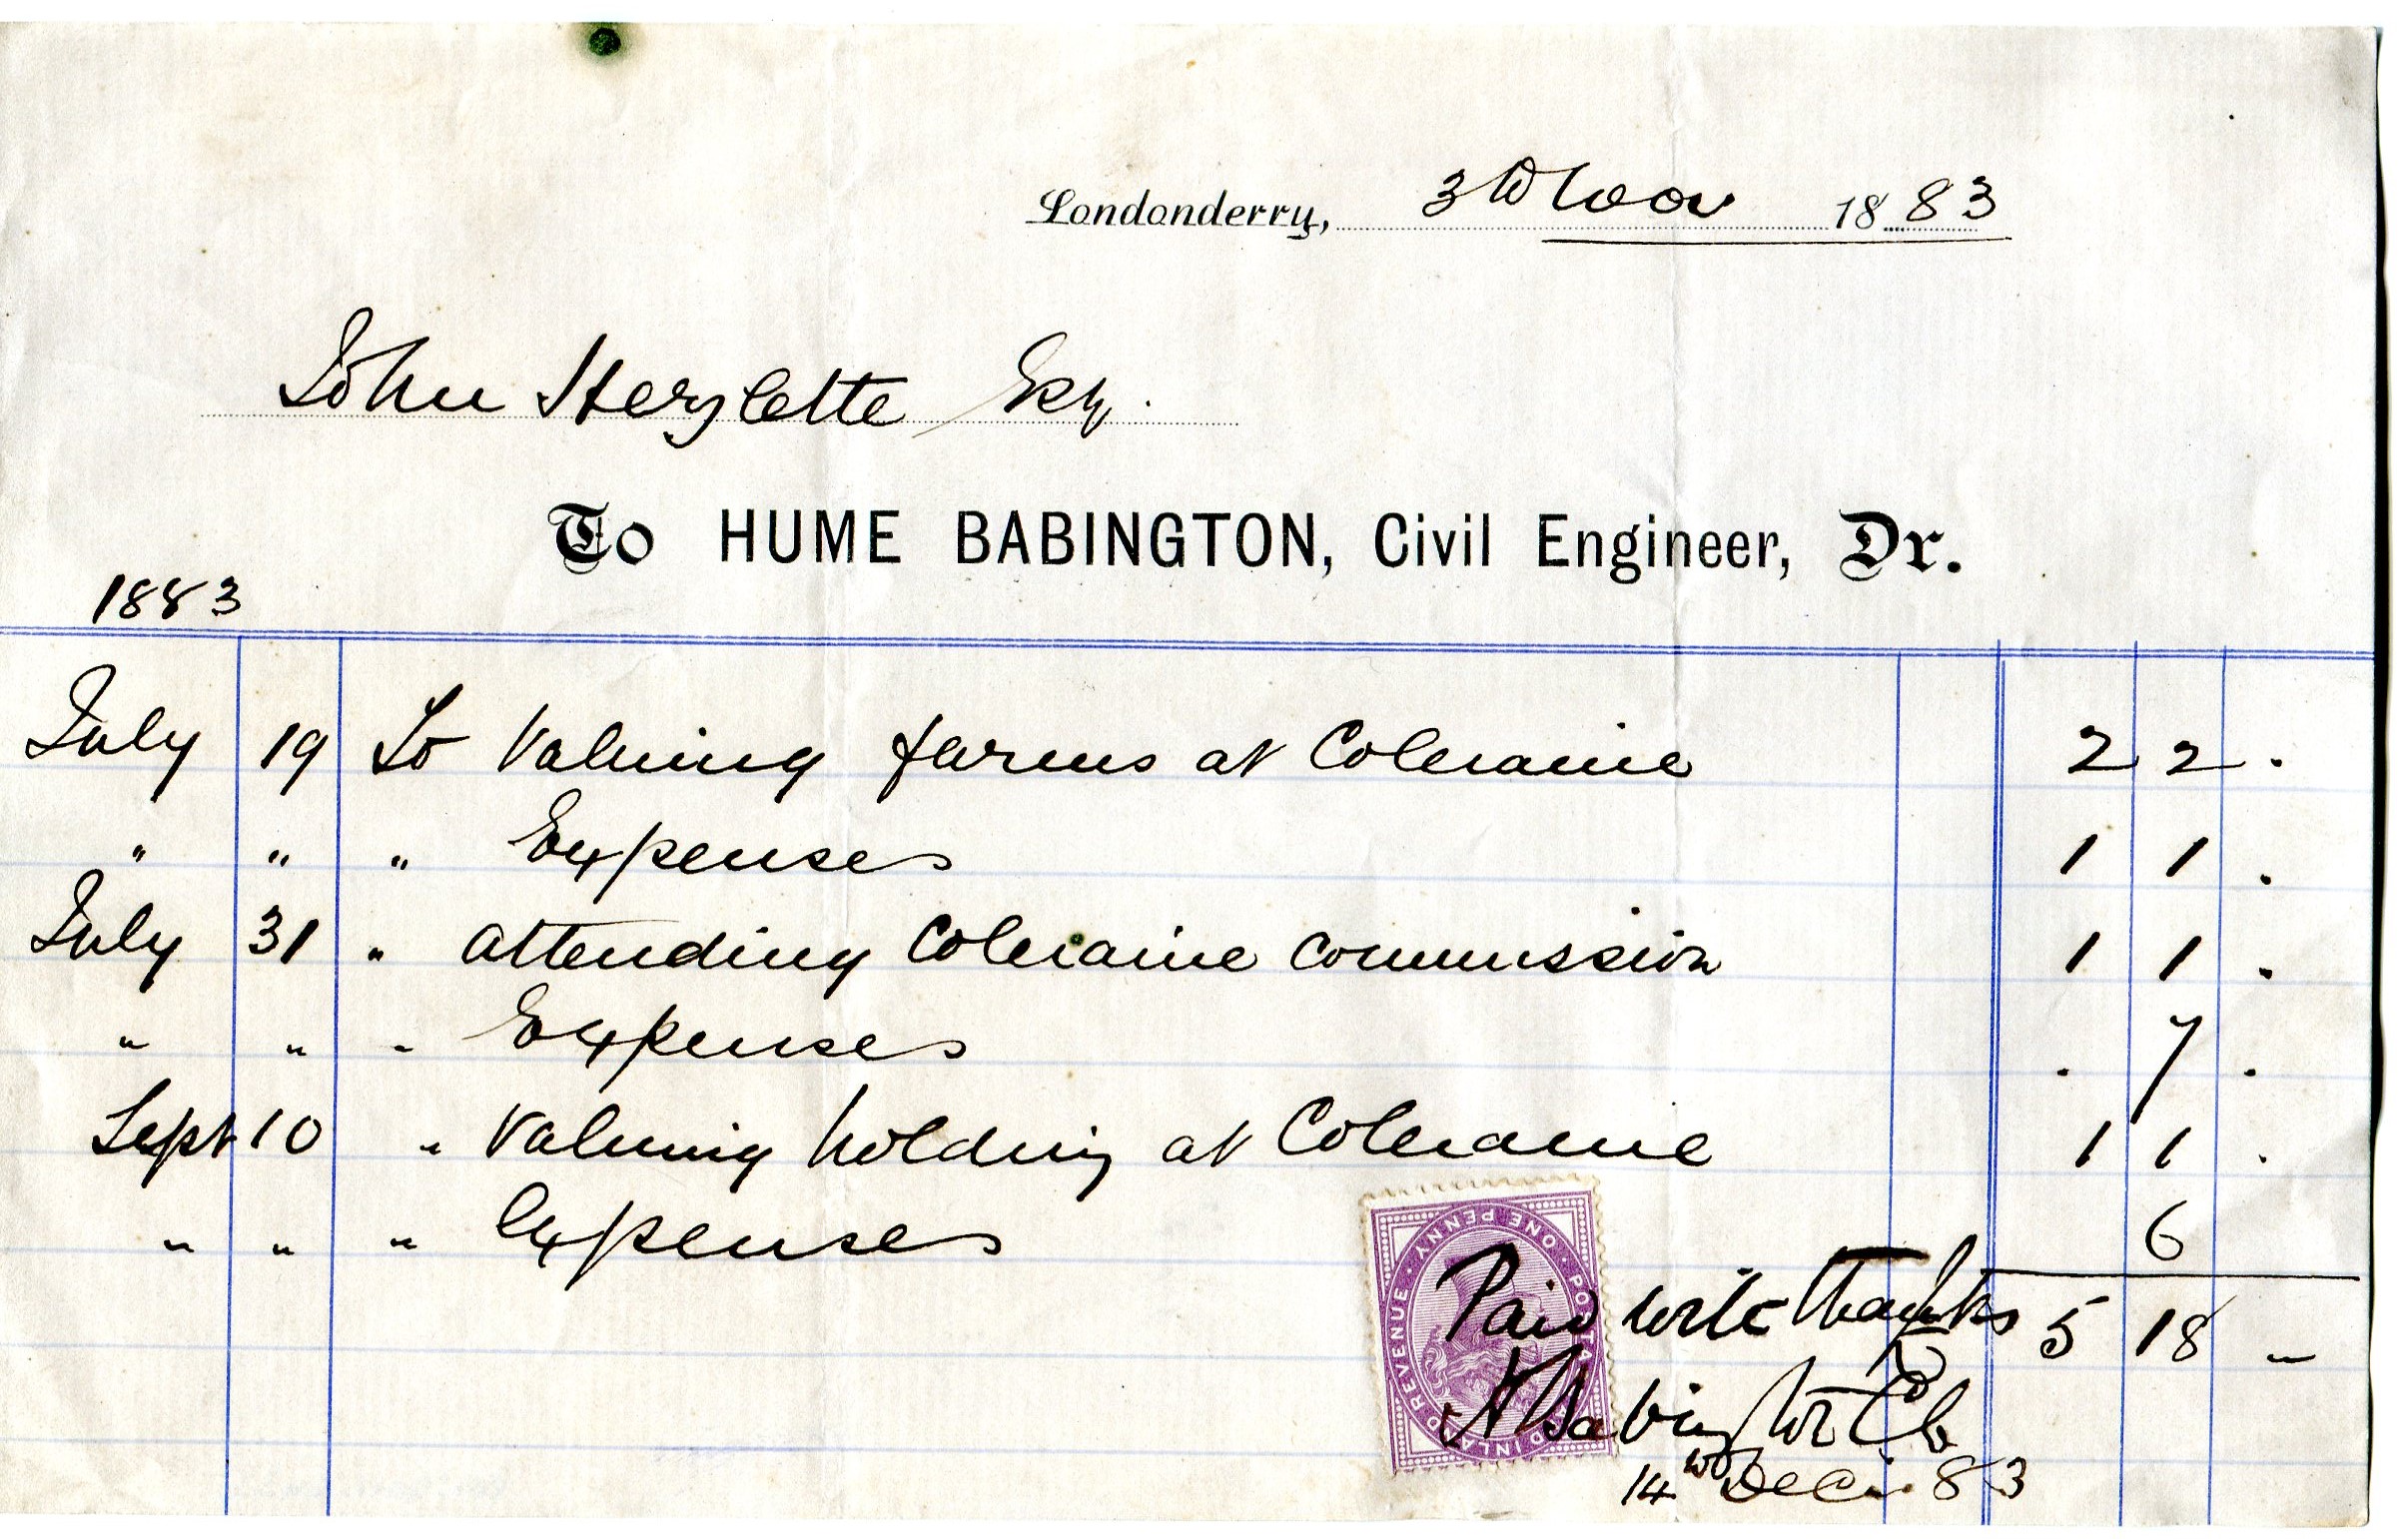 Londonderry, 3rd Nov 1883
John Hezlette Esq.
To HUME BABINGTON, Civil Engineer, Dr.
1883
July 19 To Valuing farms at Coleraine 2 2 .
" " " Expenses 1 1 .
July 31 " attending Coleraine Commission 1 1 .
" " " Expenses . 7 .
Sept 10 " Valuing holding at Coleraine 1 1 .
" " " Expenses 6
5 18 -
Paid with thanks
H Babington CE
14th Dec. 83
POSTAGE AND INLAND REVENUE · ONE PENNY ·